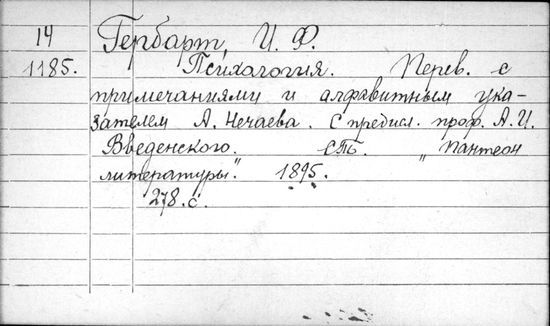 14 Гербарт, И. Ф.
1185. Психология. Перев. с
примечаниями и алфавитным ука-
зателем А. Нечаева. С предисл. проф. А. И.
Введенского. СПб. „Пантеон
литературы". 1895.
278 с.